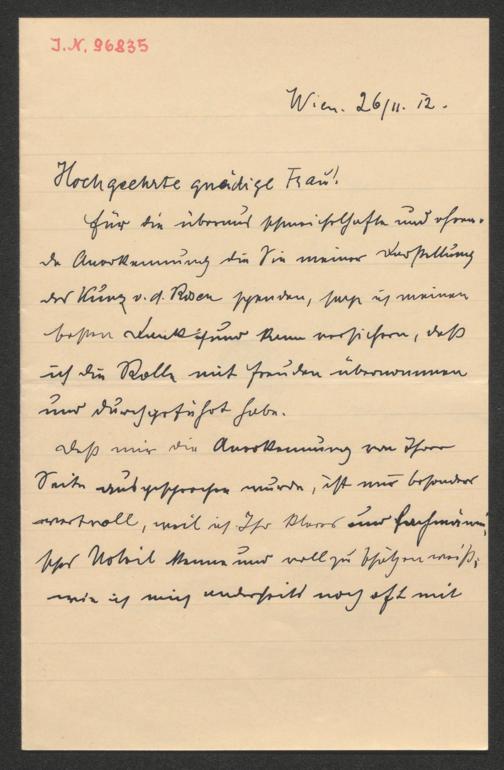 J.N. 96835
Wien. 26/II. 12.
Hochgeehrte gnädige Frau!
Für die überaus schmeichelhafte und ehren-
de Anerkennung die Sie meiner Darstellung
des Kunz v. d. Rosen spenden, sage ich meinen
besten Dank und kann versichern, daß
ich die Rolle mit Freuden übernommen
und durchgeführt habe.
Daß mir die Anerkennung von Ihrer
Seite ausgesprochen wurde, ist mir besonders
wertvoll, weil ich Ihr klares und fachmänni-
sches Urteil kenne und voll zu schätzen weiß,
wie ich mich anderseits noch oft mit